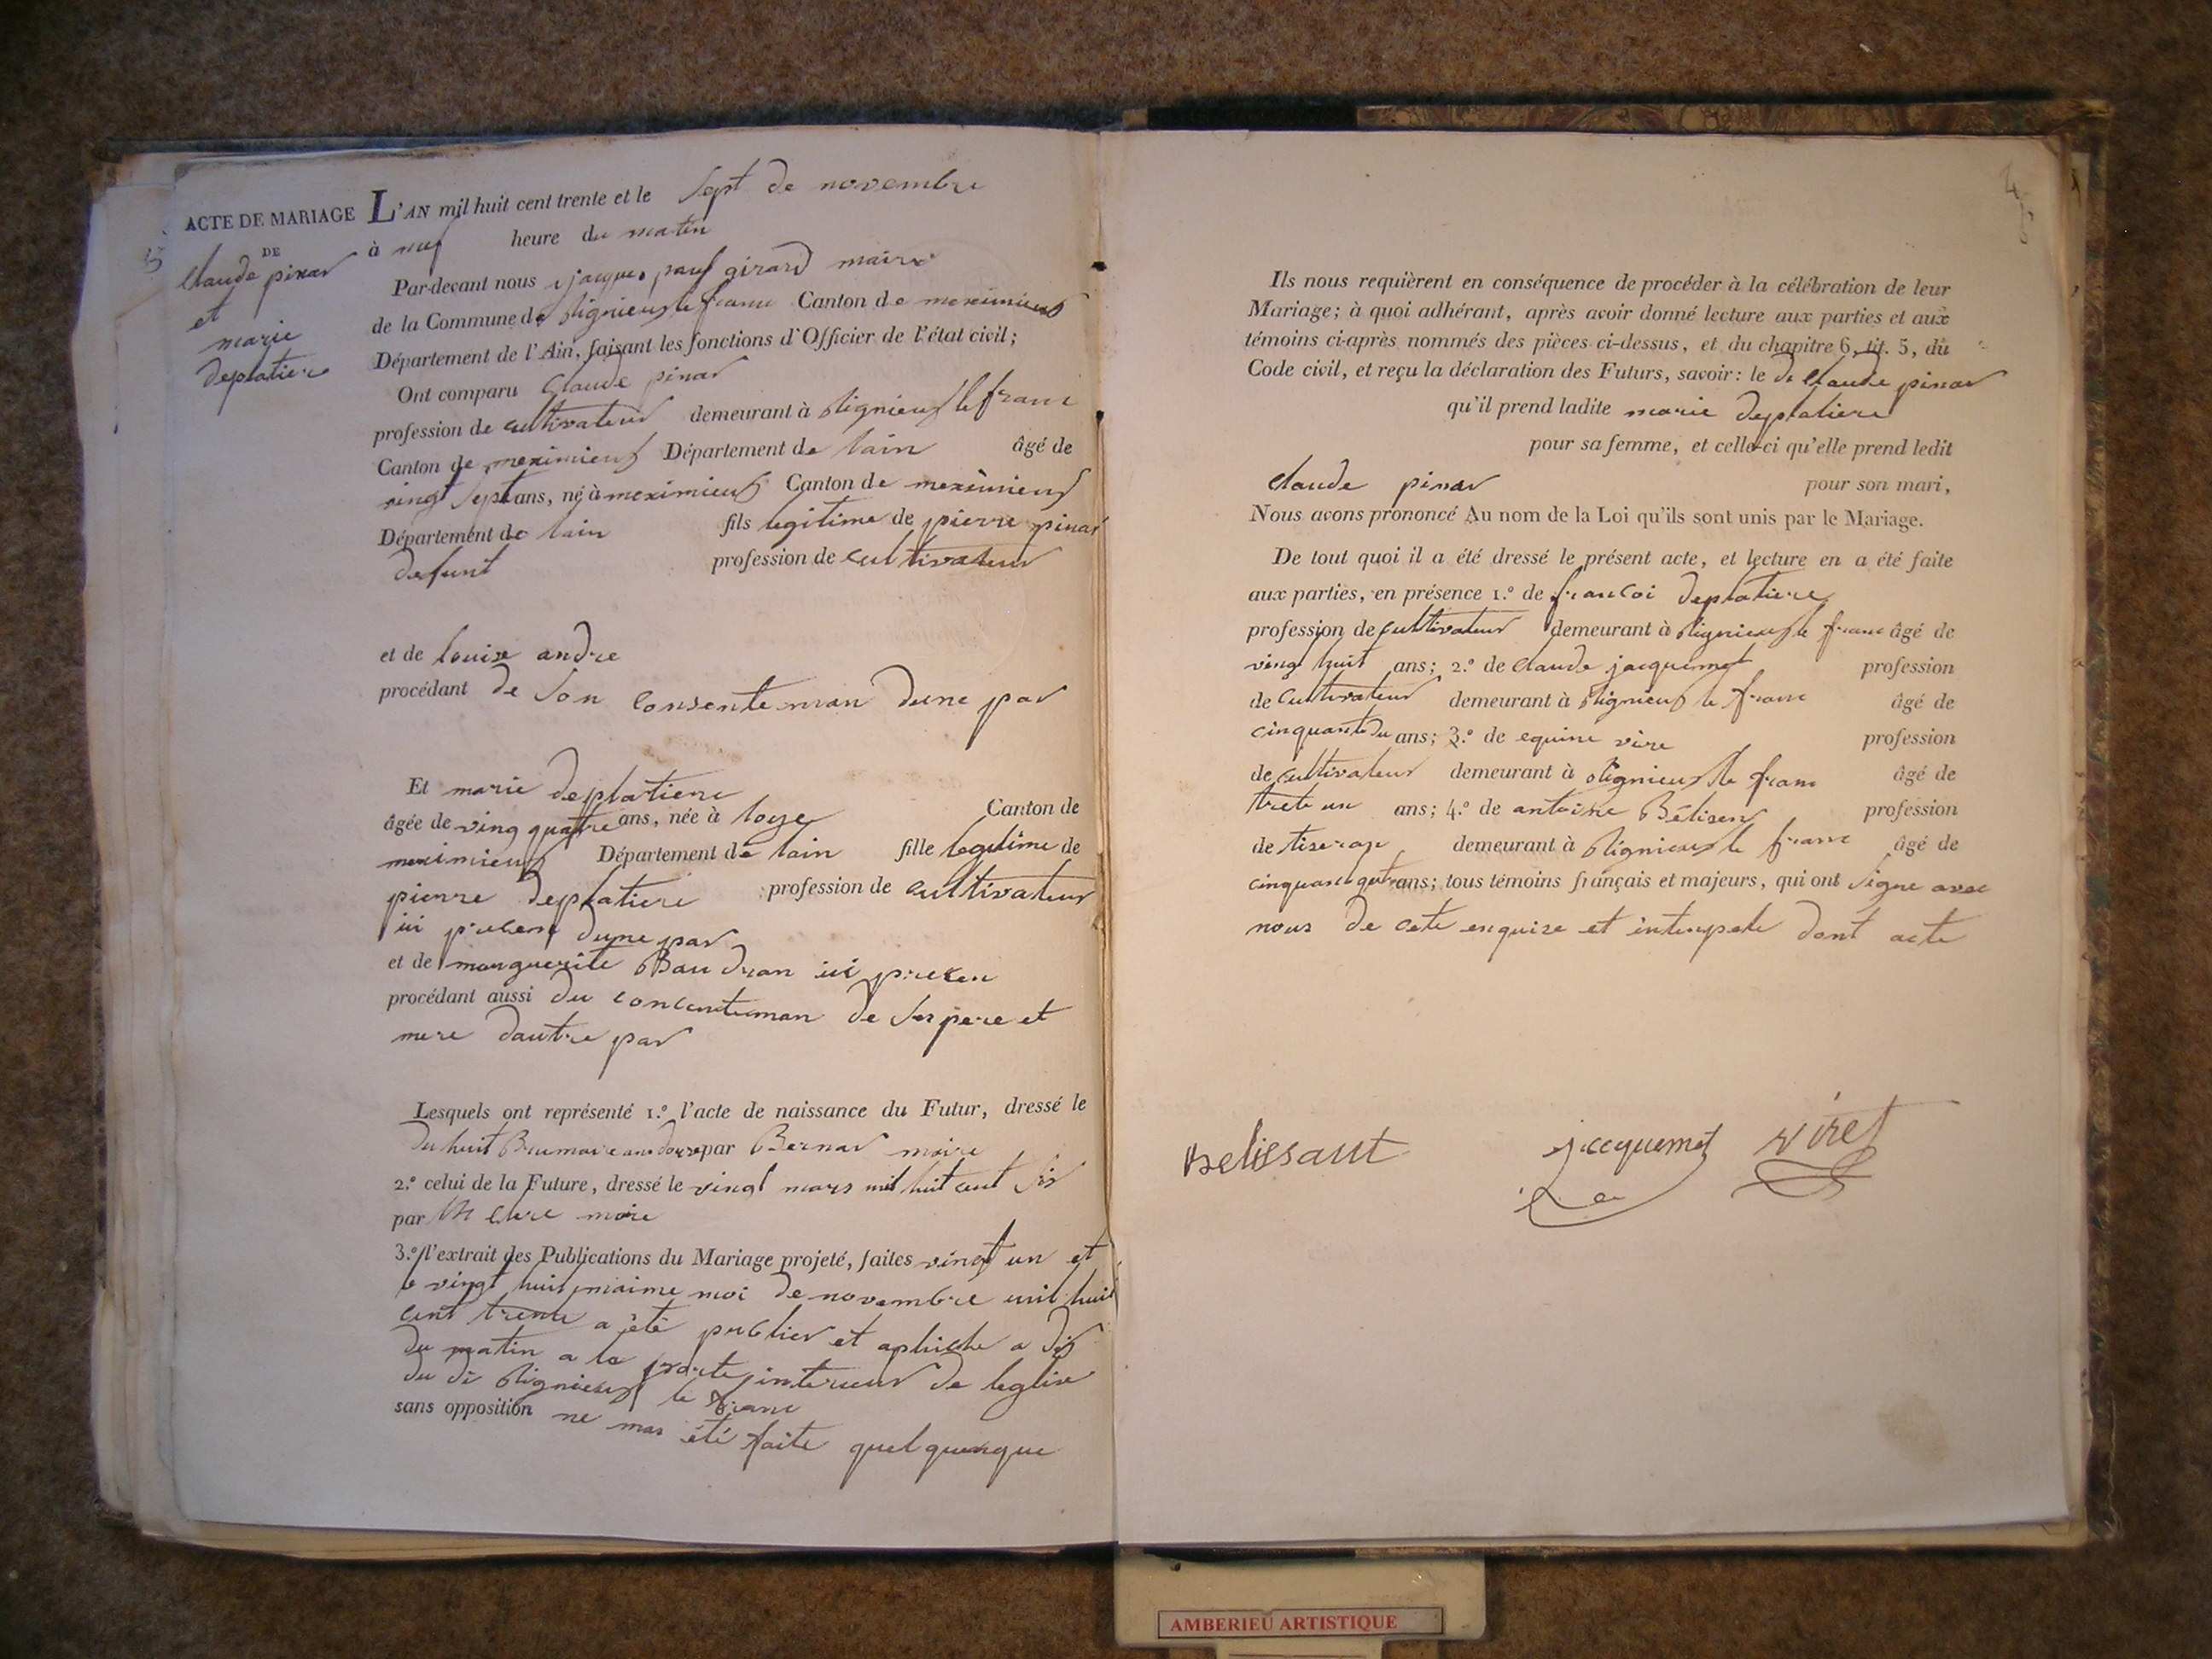 ACTE DE MARIAGE
DE
Claude pinar
et
marie
deplatiere
L'AN mil huit cent trente et le Sept de novembre
à neuf heure du matin
Par-devant nous jacque paul girard maire
de la Commune de Rignieux le franc Canton de meximieux
Département de l'Ain, faisant les fonctions d'Officier de l'état civil;
Ont comparu Claude pinar
profession de cultivateur demeurant à Rignieux le franc
Canton de meximieux Département de lain âgé de
vingt Sept ans, né à meximieux Canton de meximieux
Département de lain fils legitime de pierre pinar
defunt profession de cultivateur
et de louise andre
procédant de Son Consenteman dune par
Et marie deplatiere
âgée de ving quatre ans, née à loye Canton de
meximieux Département de lain fille legitime de
pierre deplatiere profession de cultivateur
ici dune par
et de marguerite Baudran ici
procédant aussi du concenteman de Ses pere et
mere dautre par
Lesquels ont représenté 1.º l'acte de naissance du Futur, dressé le
du huit Brumaire par Bernar maire
2.º celui de la Future, dressé le vingt mars mil huit cent Sis
par maire
3.º l'extrait des Publications du Mariage projeté, faites vingt un et
le vingt huit maime moi de novembre mil huit
cent trente a été publier et aphiche a dis
du matin a la porte interieur de leglise
du di Rignieux le franc
sans opposition ne mas été faite quelquonque
Ils nous requièrent en conséquence de procéder à la célébration de leur
Mariage; à quoi adhérant, après avoir donné lecture aux parties et aux
témoins ci-après nommés des pièces ci-dessus, et du chapitre 6, tit. 5, du
Code civil, et reçu la déclaration des Futurs, savoir: le di Claude pinar
qu'il prend ladite marie deplatiere
pour sa femme, et celle-ci qu'elle prend ledit
Claude pinar pour son mari,
Nous avons prononcé Au nom de la Loi qu'ils sont unis par le Mariage.
De tout quoi il a été dressé le présent acte, et lecture en a été faite
aux parties, en présence 1.º de francoi deplatiere
profession de cultivateur demeurant à Rignieux le franc âgé de
ving huit ans; 2.º de Claude jacquemet profession
de Cultivateur demeurant à Rignieux le franc âgé de
cinquante du ans; 3.º de equine vire profession
de cultivateur demeurant à Rignieux le franc âgé de
ans; 4.º de antoine Belisen profession
de demeurant à Rignieux le franc âgé de
ans; tous témoins français et majeurs, qui ont Signe avec
nous de cete enquise et dont acte
Belissant jacquemet viret
AMBERIEU ARTISTIQUE